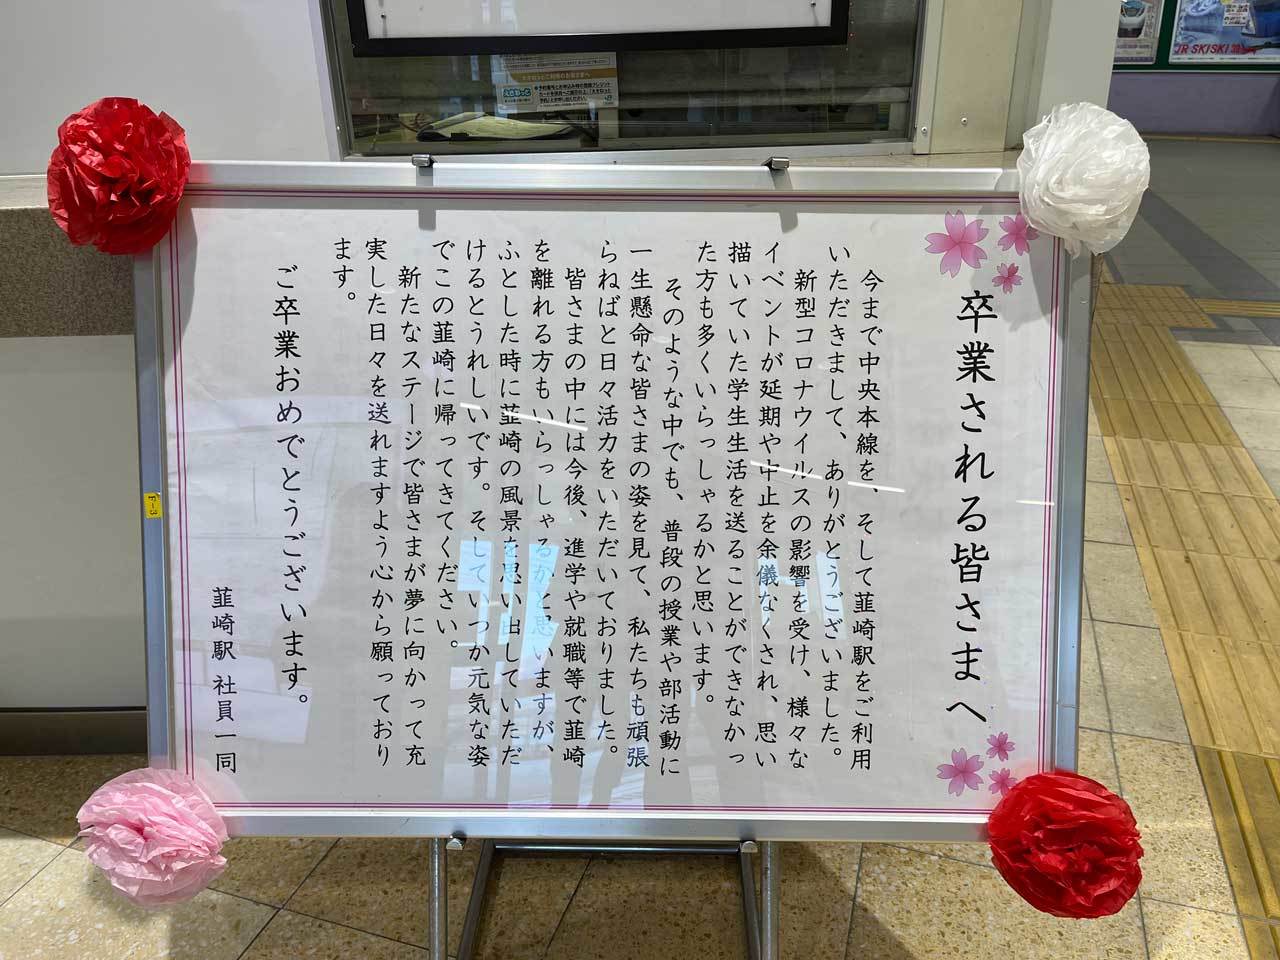 卒業される皆さまへ
今まで中央本線を、そして韮崎駅をご利用
いただきまして、ありがとうございました。
新型コロナウイルスの影響を受け、様々な
イベントが延期や中止を余儀なくされ、思い
描いていた学生生活を送ることができなかっ
た方も多くいらっしゃるかと思います。
そのような中でも、普段の授業や部活動に
一生懸命な皆さまの姿を見て、私たちも頑張
らねばと日々活力をいただいておりました。
皆さまの中には今後、進学や就職等で韮崎
を離れる方もいらっしゃるかと思いますが、
ふとした時に韮崎の風景を思い出していただ
けるとうれしいです。そしていつか元気な姿
でこの韮崎に帰ってきてください。
新たなステージで皆さまが夢に向かって充
実した日々を送れますよう心から願っており
ます。
ご卒業おめでとうございます。
韮崎駅 社員一同
F-3
えきねっと
JR SKISKI